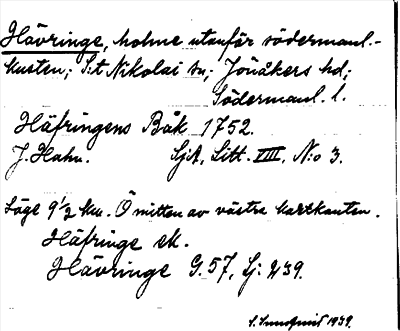 Hävringe, holme utanför södermanl.-
kusten; S:t Nikolai sn; Jönåkers hd;
Södermanl. l.
Häfringens Båk 1752.
J. Hahn. SjA, Litt. VIII, N:o 3.
Läge 9 1/2 km. Ö mitten av västra kartkanten.
Häfringe ek.
Hävringe G. 57, Sj:
S. Sundquist 1939.